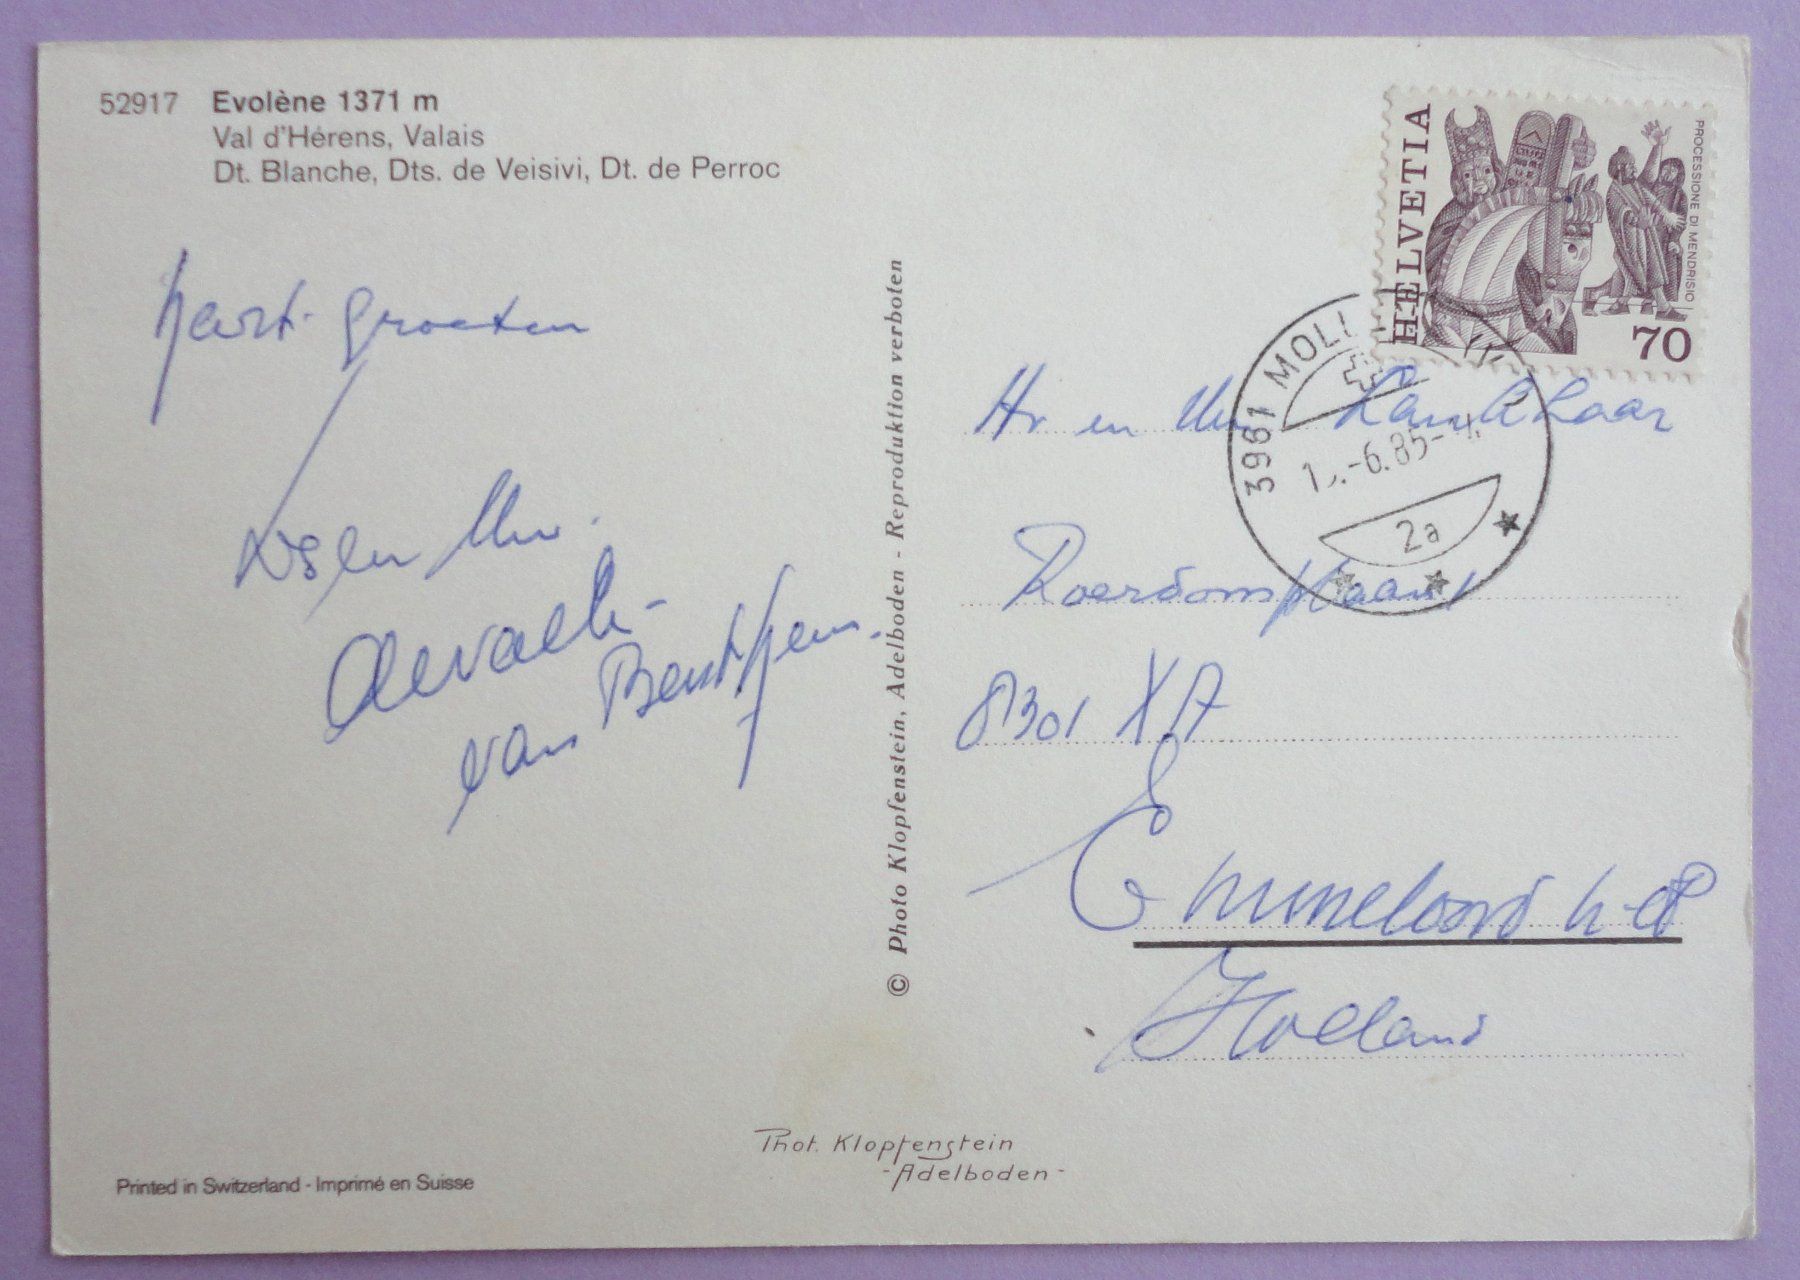 52917 Evolène 1371 m
Val d'Hérens, Valais
Dt. Blanche, Dts. de Veisivi, Dt. de Perroc
HELVETIA
PROCESSIONE DI MENDRISIO
70
3961 MOLL
-6.85-
2a
hart. groeten
van
Benthem.
© Photo Klopfenstein, Adelboden - Reproduktion verboten
Hr en Mw
Roerdomplaan 1
8301 XA
Emmeloord
Holland
Phot. Klopfenstein
- Adelboden -
Printed in Switzerland - Imprimé en Suisse